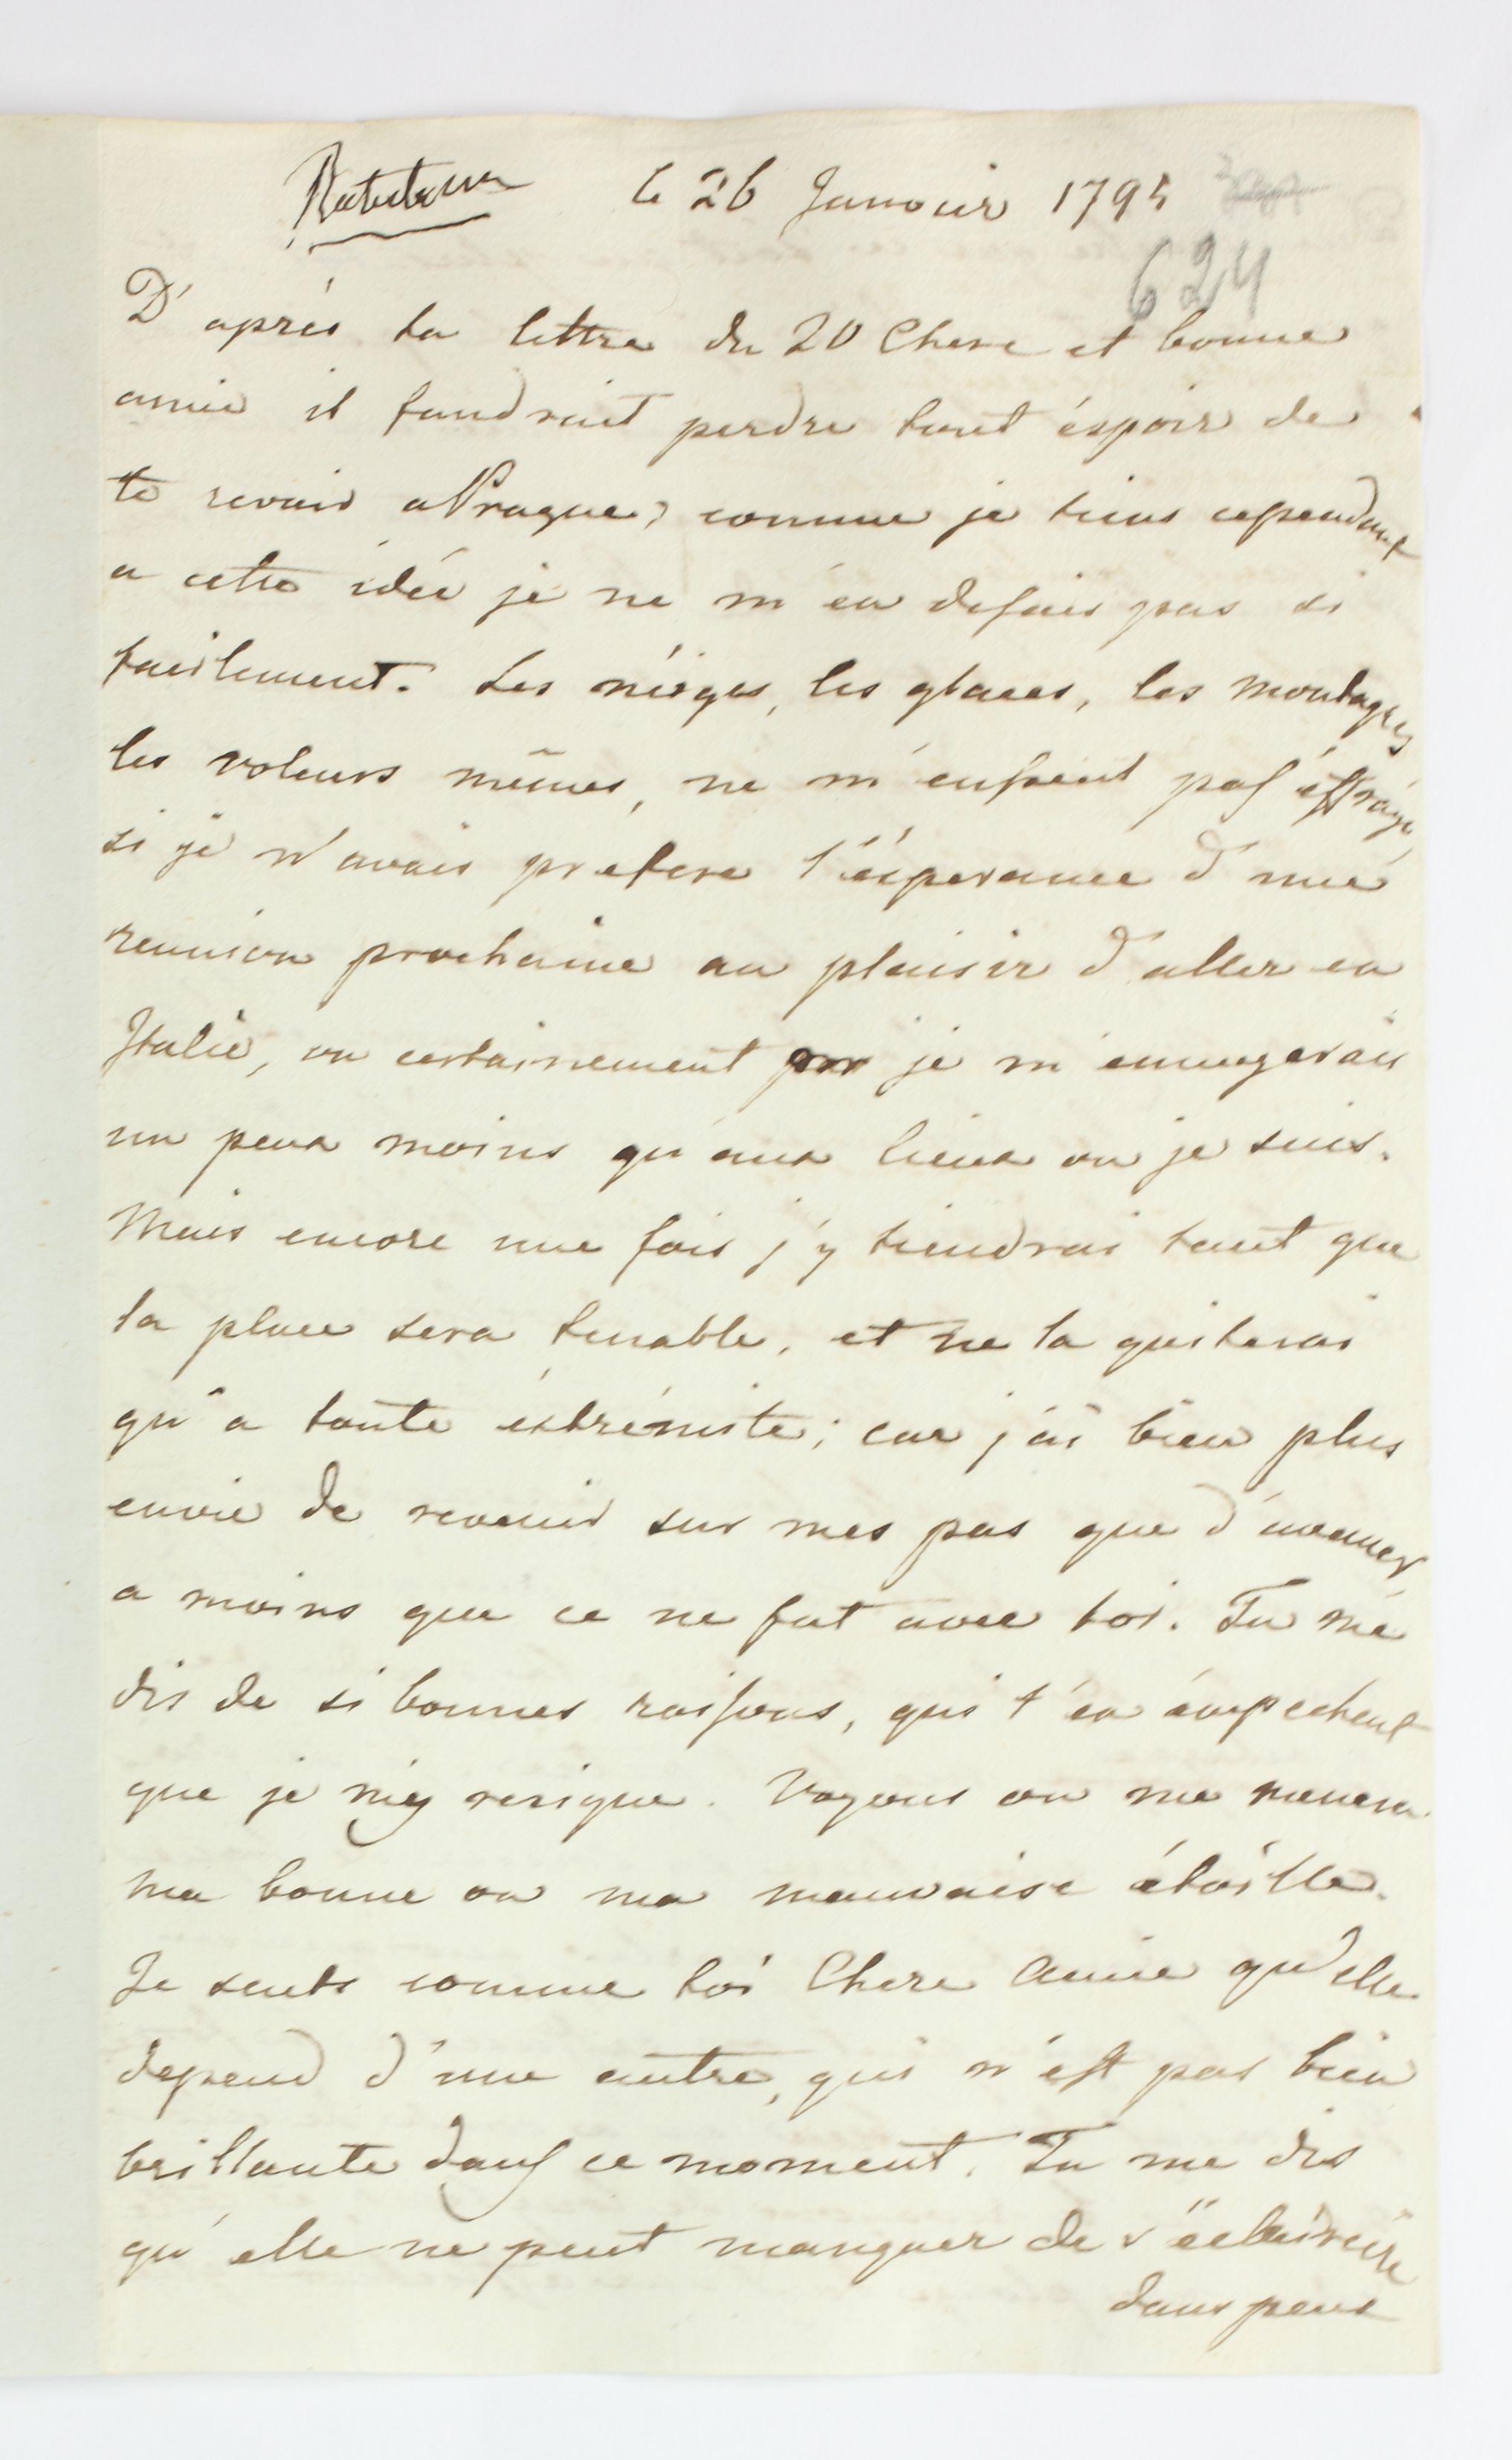 le 26 Janvier 1795
624
D'après ta lettre du 20 Chere et bonne
amie il faudrait perdre tout éspoir de
te revoir a Prague, comme je tiens cependant
a cette idée je ne m'en defais pas si
facilement. Les néiges, les glaces, les montagnes
les voleurs mêmes, ne m'eussent pas éffrayé,
si je n'avais preferé l'ésperance d'une
reunion prochaine au plaisir d'aller en
Italie, ou certainement je m'ennuyerais
un peux moins qu'aux lieux ou je suis.
Mais encore une fois j'y tiendrai tant que
la place sera tenable, et ne la quiterai
qu'a toute éxtrémité; car j'ai bien plus
envie de revenir sur mes pas que d'avancer
a moins que ce ne fut avec toi. Tu me
dis de si bonnes raisons, qui t'en émpechent
que je m'y resigne. Voyons ou me menera
ma bonne ou ma mauvaise étoille.
Je sents comme toi Chere Amie qu'elle
depend d'une autre, qui n'est pas bien
brillante dans ce moment. Tu me dis
qu'elle ne peut manquer de s'éclaircire
dans peux